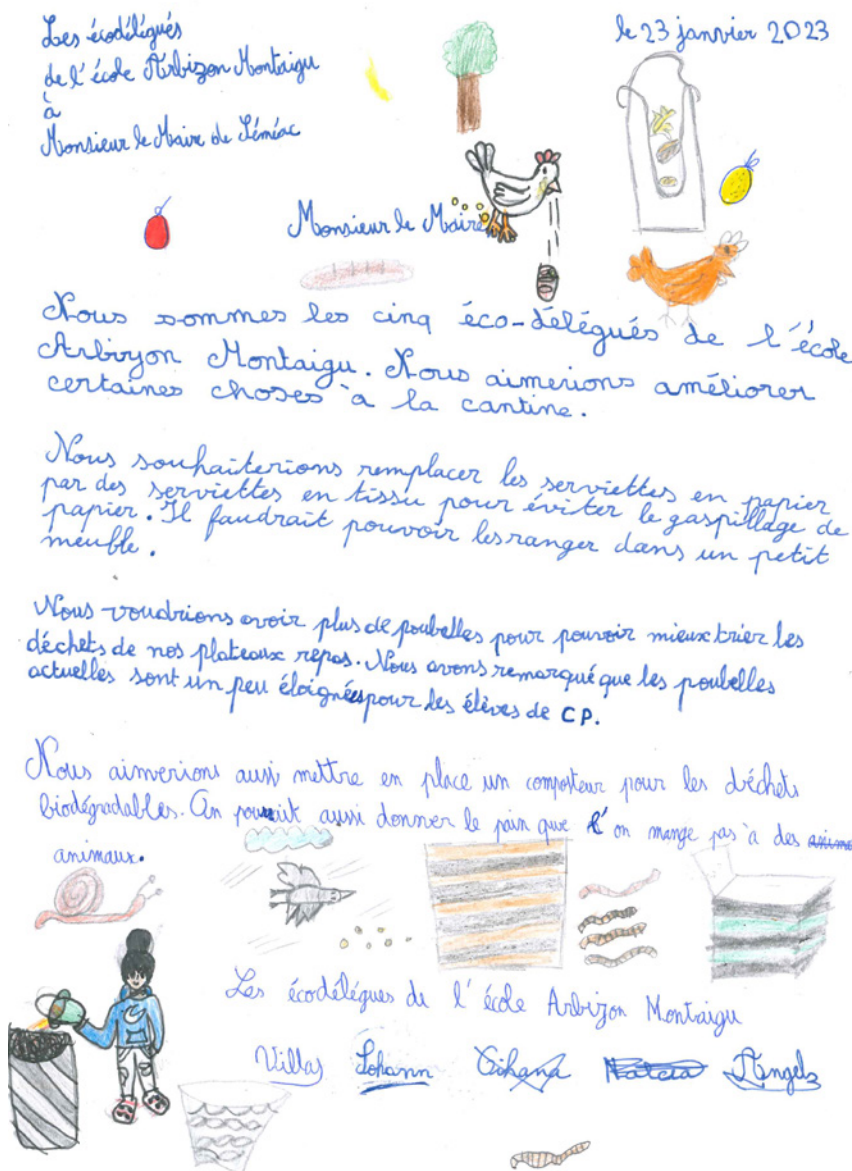 Les écodélégués
le 23 janvier 2023
de l'école Arbizon Montaigu
à
Monsieur le Maire de Séméac
Monsieur le Maire
Nous sommes les cinq éco-délégués de l'école
Arbizon Montaigu. Nous aimerions améliorer
certaines choses à la cantine.
Nous souhaiterions remplacer les serviettes en papier
par des serviettes en tissu pour éviter le gaspillage de
papier. Il faudrait pouvoir les ranger dans un petit
meuble.
Nous voudrions avoir plus de poubelles pour pouvoir mieux trier les
déchets de nos plateaux repas. Nous avons remarqué que les poubelles
actuelles sont un peu éloignées pour les élèves de CP.
Nous aimerions aussi mettre en place un composteur pour les déchets
biodégradables. On pourrait aussi donner le pain que l'on mange pas à des
animaux.
Les écodélégues de l'école Arbizon Montaigu
Villas Lohann Angelz